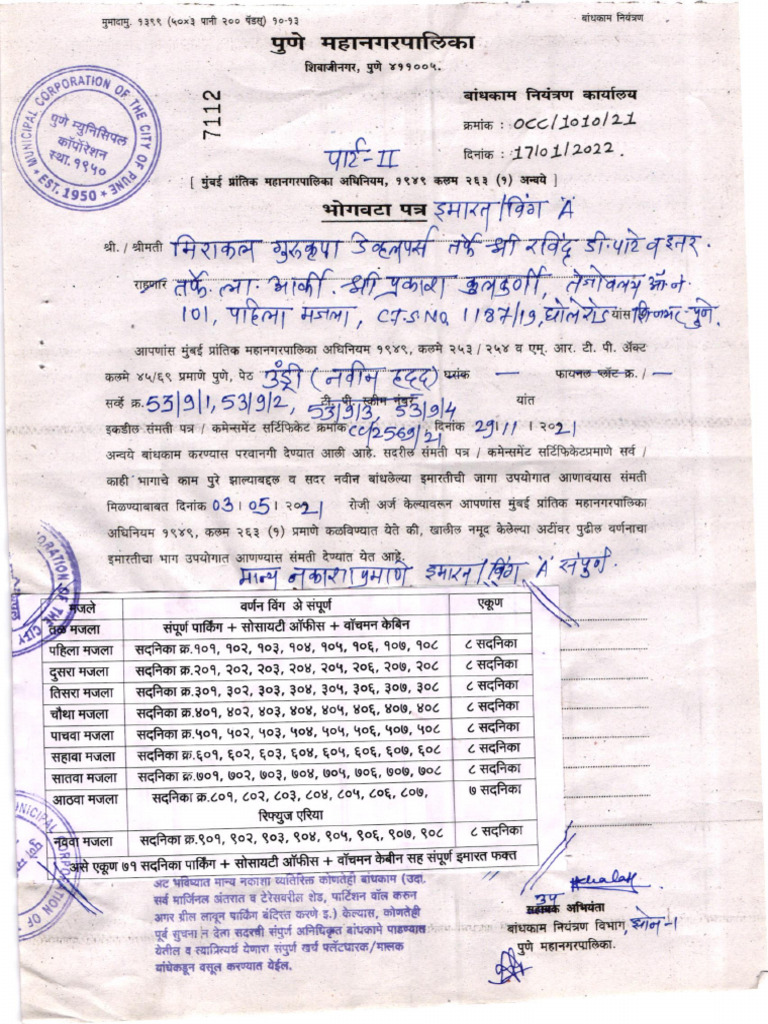 मुमादामु. १३९९ (५०×३ पानी २०० पॅडस्) १०-१३
बांधकाम नियंत्रण
पुणे महानगरपालिका
शिवाजीनगर, पुणे ४११००५.
MUNICIPAL CORPORATION OF THE CITY OF PUNE
पुणे म्युनिसिपल
कॉर्पोरेशन
स्था. १९५०
EST. 1950
7112
बांधकाम नियंत्रण कार्यालय
क्रमांक : OCC/1010/21
पार्ट-II
दिनांक : 17/01/2022.
[ मुंबई प्रांतिक महानगरपालिका अधिनियम, १९४९ कलम २६३ (१) अन्वये ]
भोगवटा पत्र इमारत/विंग "A"
श्री. / श्रीमती मिराकल गुरुकृपा डेव्हलपर्स तर्फे श्री रविंद्र डी. पाटे व इतर.
राहणार तर्फे. ला. आर्की. श्री. प्रकाश कुलकर्णी, तेजोवलय ऑ.नं.
101, पाहिला मजला, C.T.S. No. 1187/19, घोलेरोड यांस शिवाजीनगर पुणे.
आपणांस मुंबई प्रांतिक महानगरपालिका अधिनियम १९४९, कलमे २५३ / २५४ व एम्. आर. टी. पी. ॲक्ट
कलमे ४५/६९ प्रमाणे पुणे, पेठ उंड्री (नवीन हद्द) घरांक — फायनल प्लॉट क्र. / —
सर्व्हे क्र. 53/9/1, 53/9/2, टी. पी. स्कीम नंबर 53/9/3, 53/9/4 यांत
इकडील संमती पत्र / कमेन्समेंट सर्टिफिकेट क्रमांक CC/2569/21 दिनांक 29।11।२०21
अन्वये बांधकाम करण्यास परवानगी देण्यात आली आहे. सदरील संमती पत्र / कमेन्समेंट सर्टिफिकेटप्रमाणे सर्व /
काही भागाचे काम पुरे झाल्याबद्दल व सदर नवीन बांधलेल्या इमारतीची जागा उपयोगात आणावयास संमती
मिळण्याबाबत दिनांक 03।05।२०21 रोजी अर्ज केल्यावरून आपणांस मुंबई प्रांतिक महानगरपालिका
अधिनियम १९४९, कलम २६३ (१) प्रमाणे कळविण्यात येते की, खालील नमूद केलेल्या अटींवर पुढील वर्णनाचा
इमारतीचा भाग उपयोगात आणण्यास संमती देण्यात येत आहे.
मान्य नकाशाप्रमाणे इमारत/विंग "A" संपुर्ण.
मजले वर्णन विंग अे संपूर्ण एकूण
तळ मजला संपूर्ण पार्किंग + सोसायटी ऑफीस + वॉचमन केबिन
पहिला मजला सदनिका क्र.१०१, १०२, १०३, १०४, १०५, १०६, १०७, १०८ ८ सदनिका
दुसरा मजला सदनिका क्र.२०१, २०२, २०३, २०४, २०५, २०६, २०७, २०८ ८ सदनिका
तिसरा मजला सदनिका क्र.३०१, ३०२, ३०३, ३०४, ३०५, ३०६, ३०७, ३०८ ८ सदनिका
चौथा मजला सदनिका क्र.४०१, ४०२, ४०३, ४०४, ४०५, ४०६, ४०७, ४०८ ८ सदनिका
पाचवा मजला सदनिका क्र.५०१, ५०२, ५०३, ५०४, ५०५, ५०६, ५०७, ५०८ ८ सदनिका
सहावा मजला सदनिका क्र.६०१, ६०२, ६०३, ६०४, ६०५, ६०६, ६०७, ६०८ ८ सदनिका
सातवा मजला सदनिका क्र.७०१, ७०२, ७०३, ७०४, ७०५, ७०६, ७०७, ७०८ ८ सदनिका
आठवा मजला सदनिका क्र.८०१, ८०२, ८०३, ८०४, ८०५, ८०६, ८०७, ७ सदनिका
रिफ्युज एरिया
नववा मजला सदनिका क्र.९०१, ९०२, ९०३, ९०४, ९०५, ९०६, ९०७, ९०८ ८ सदनिका
असे एकूण ७१ सदनिका पार्किंग + सोसायटी ऑफीस + वॉचमन केबीन सह संपूर्ण इमारत फक्त
अट भविष्यात मान्य नकाशा व्यतिरिक्त कोणतेही बांधकाम (उदा.
सर्व मार्जिनल अंतरात व टेरेसवरील शेड, पार्टिशन वॉल करुन
अगर ग्रील लावून पार्किंग बंदिस्त करणे इ.) केल्यास, कोणतेही
पूर्व सुचना न देता सदरची संपुर्ण अनधिकृत बांधकामे पाडण्यास
येतील व त्याप्रित्यर्थ येणारा संपुर्ण खर्च फ्लॅटधारक/मालक
यांचेकडून वसूल करण्यात येईल.
उप
सहायक अभियंता
बांधकाम नियंत्रण विभाग, झोन-1
पुणे महानगरपालिका.